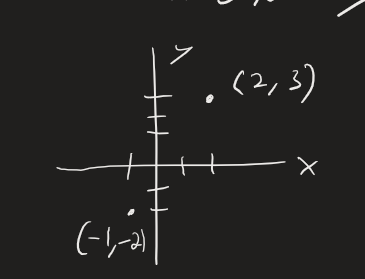 y
(2, 3)
x
(-1, -2)